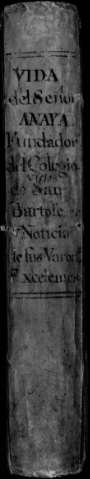 VIDA
del Señor
ANAYA
Fundador
del Colegio
Viejo
de San
Bartole
y Noticia
de sus Varon
Excelentes